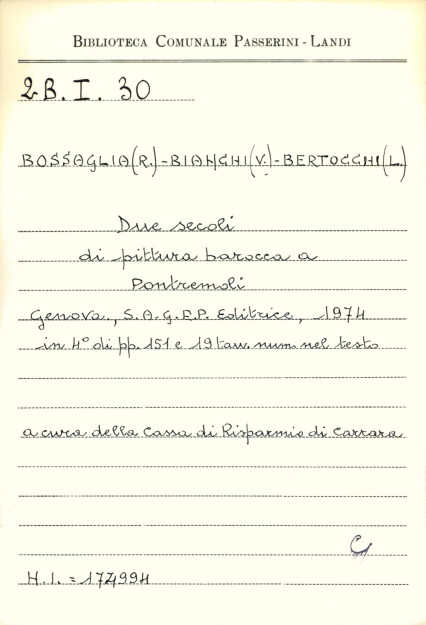 BIBLIOTECA COMUNALE PASSERINI - LANDI
2B. I. 30
BOSSAGLIA(R.)-BIANGHI(V.)-BERTOGGHI(L.)
Due secoli
di pittura barocca a
Pontremoli
Genova., S.A.G.E.P. Editrice, 1974
in 4° di pp. 151 e 19 tav. num. nel testo
a cura della Cassa di Risparmio di Carrara
H.I. = 174994